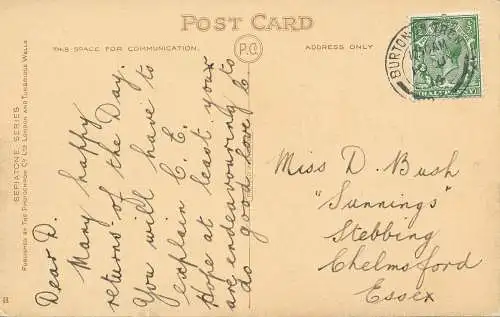 POST CARD
THIS SPACE FOR COMMUNICATION.
P.C
ADDRESS ONLY
BURTON ON TRENT
HALFPENNY
SEPIATONE SERIES
PUBLISHED BY THE PHOTOCHROM CO LTD LONDON AND TUNBRIDGE WELLS
Dear D.
Many happy
returns of the Day.
You will have to
explain C. E.
Hope at least your
are endeavouring to
do good love C
Miss D. Bush
"Sunnings"
Stebbing
Chelmsford
Essex